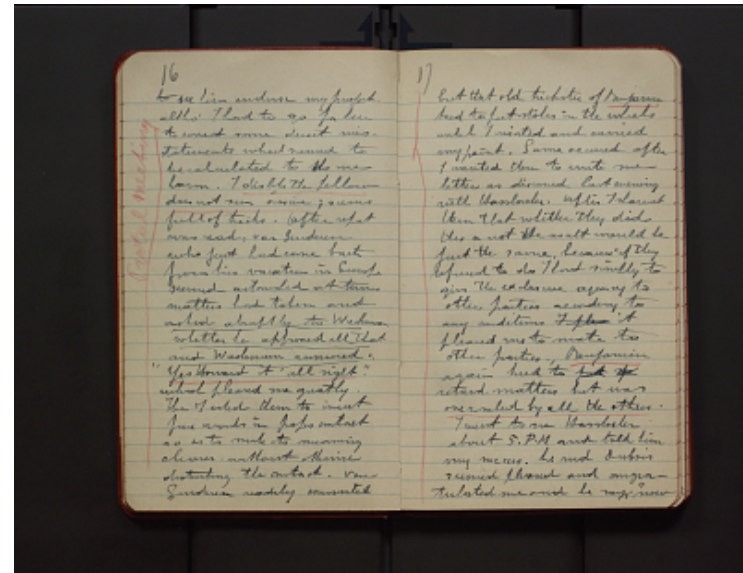 16
to see him endorse my project.
altho' I had to go
to correct some direct mis-
statements which seemed to
be calculated to do me
harm. I dislike the fellow
does not seem sincere; seems
full of tricks. After what
was said, van Sinderen
who just had come back
from his vacation in Europe
seemed astounded at turn
matters had taken and
asked abruptly to
whether he approved all that
and answered.
"Yes Howard it's all right"
which pleased me greatly.
The I asked them to insert
four words in contract
so as to make its meaning
clearer without
disturbing the contract. Van
Sinderen readily consented
Central meeting
17
but that old trickster of
tried to put stakes in the wheels
until I insisted and carried
my point. Same occurred after
I wanted them to write me
letter as discussed last evening
with . After I showed
them that whether they did
this or not the result would be
just the same, because if they
refused to do I had simply to
give the exclusive agency to
other parties according to
any conditions it
pleased me to make to
other parties,
again tried to
retard matters but was
overruled by all the others.
I went to see
about 5 P.M. and told him
my success. he and Dubois
seemed pleased and congra-
tulated me and he says now